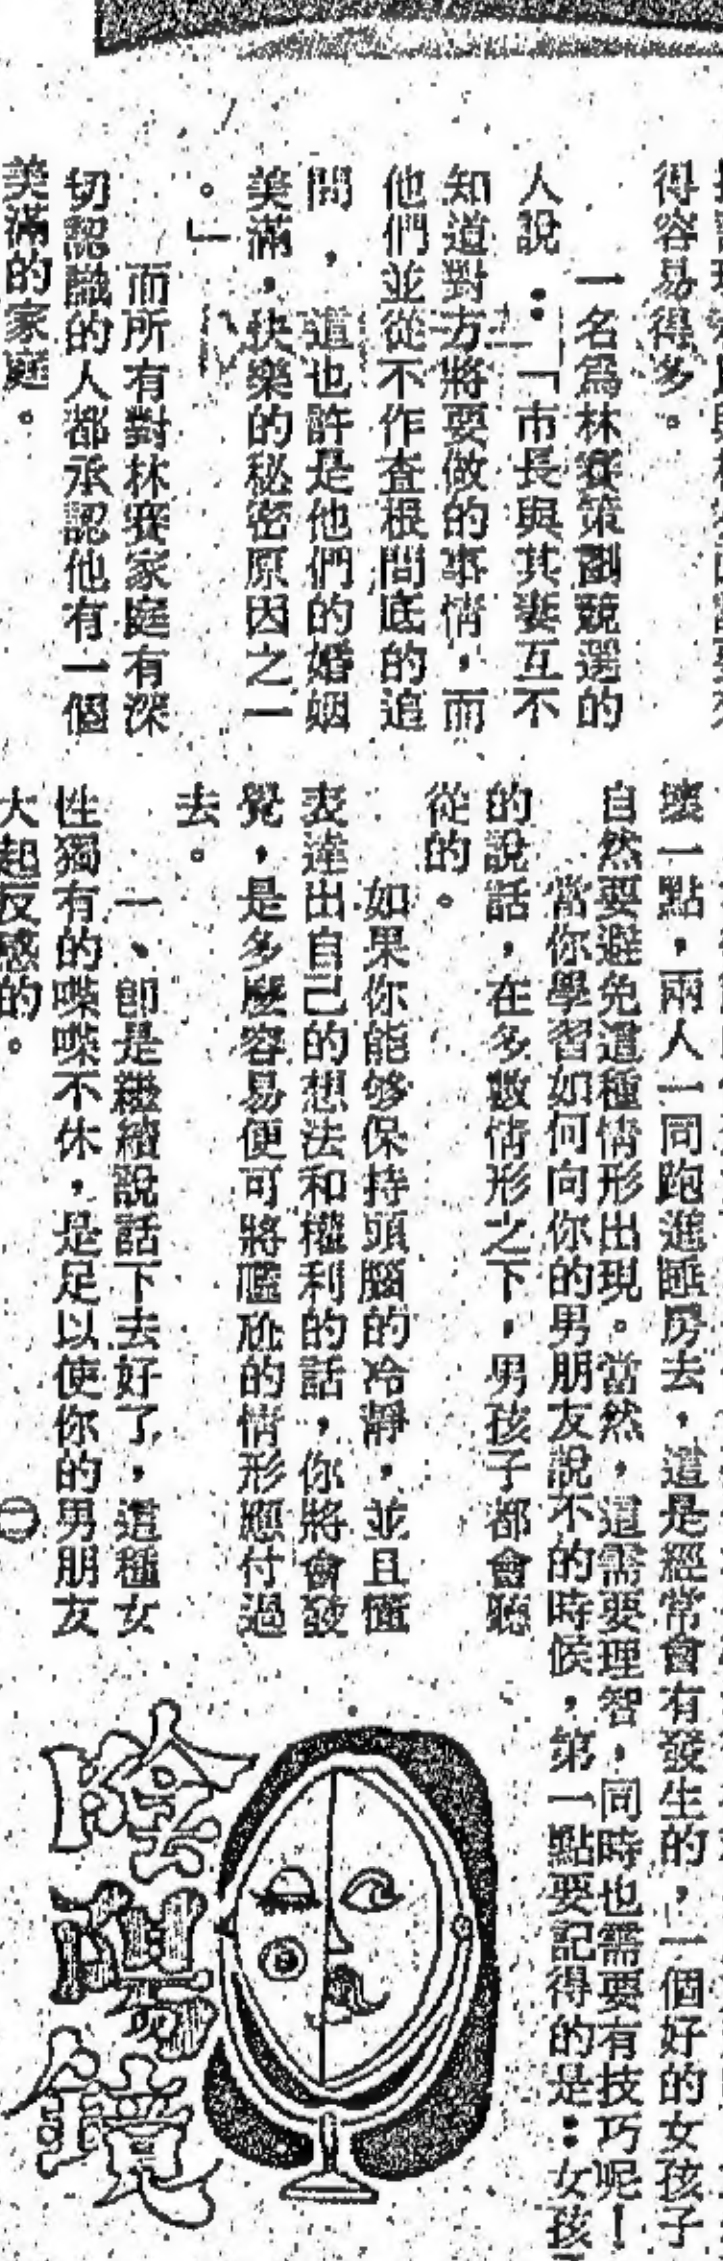 得容易得多。
一名爲林賽策劃競選的
人說：「市長與其妻互不
知道對方將要做的事情，而
他們並從不作查根問底的追
問，這也許是他們的婚姻
美滿，快樂的秘密原因之一
。」
而所有對林賽家庭有深
切認識的人都承認他有一個
美滿的家庭。
壞一點，兩人一同跑進睡房去，這是經常會有發生的，一個好的女孩子
自然要避免這種情形出現。當然，這需要理智，同時也需要有技巧呢！
當你學習如何向你的男朋友說不的時候，第一點要記得的是：女孩
的說話，在多數情形之下，男孩子都會聽
從的。
如果你能够保持頭腦的冷靜，並且
表達出自己的想法和權利的話，你將會發
覺，是多麼容易便可將尷尬的情形應付過
去。
一、卽是繼續說話下去好了，這種女
性獨有的喋喋不休，是足以使你的男朋友
大起反感的。
㊁
陰陽鏡